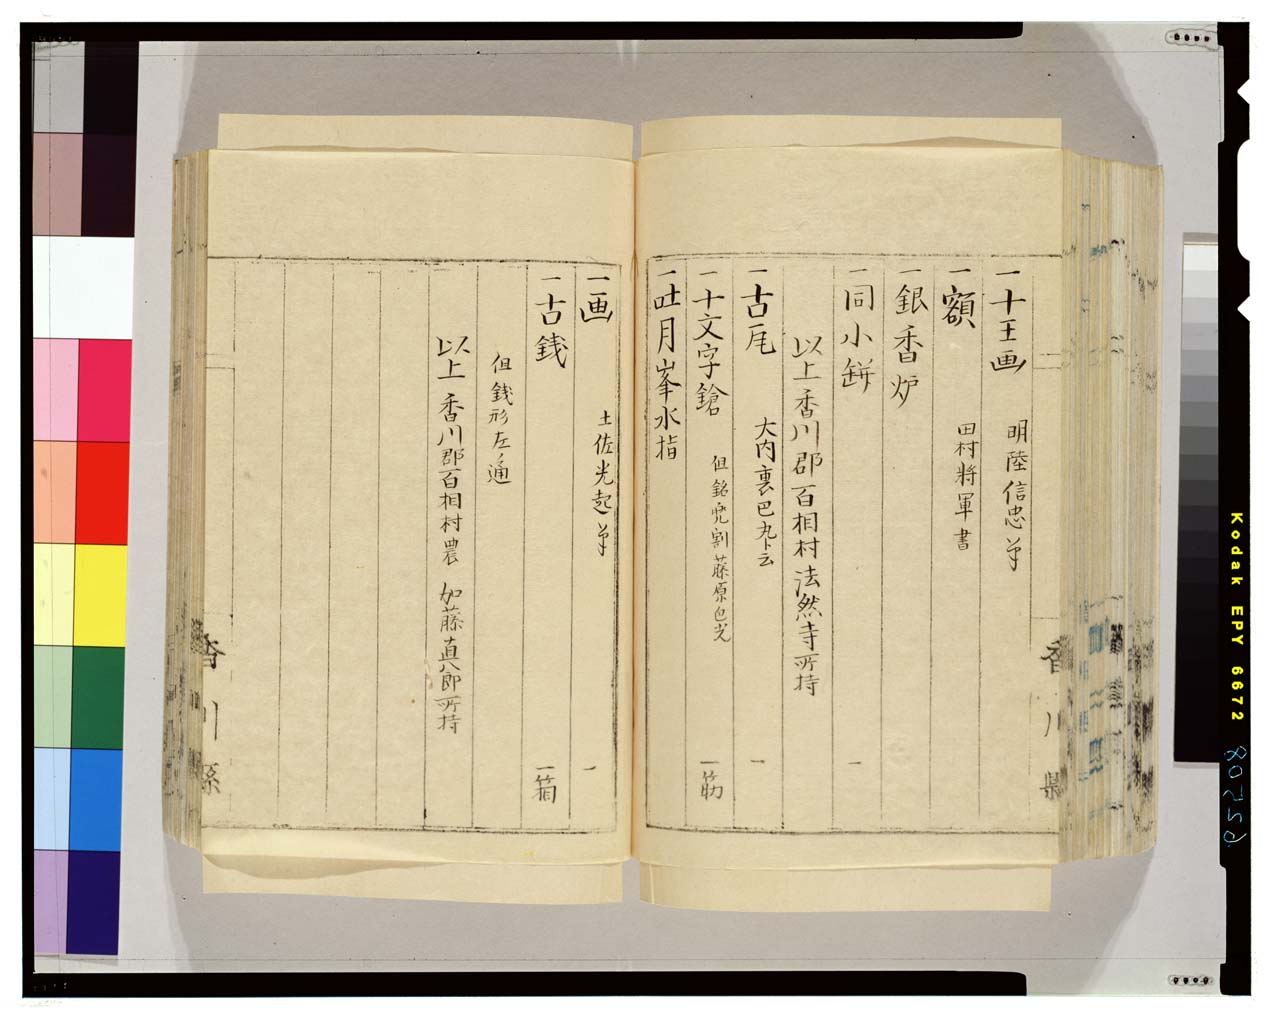 一十王画 明陸信忠筆
一額 田村將軍書
一銀香炉
一同小缾 一
以上香川郡百相村法然寺所持
一古瓦 大内裏巴丸ト云 一
一十文字鎗 但銘 割藤原包光 一筋
一吐月峯水指
香川縣
一画 土佐光起筆 一
一古銭 一箱
但銭形左ノ通
以上香川郡百相村農 加藤直八郎所持
香川縣
Kodak EPY 6672